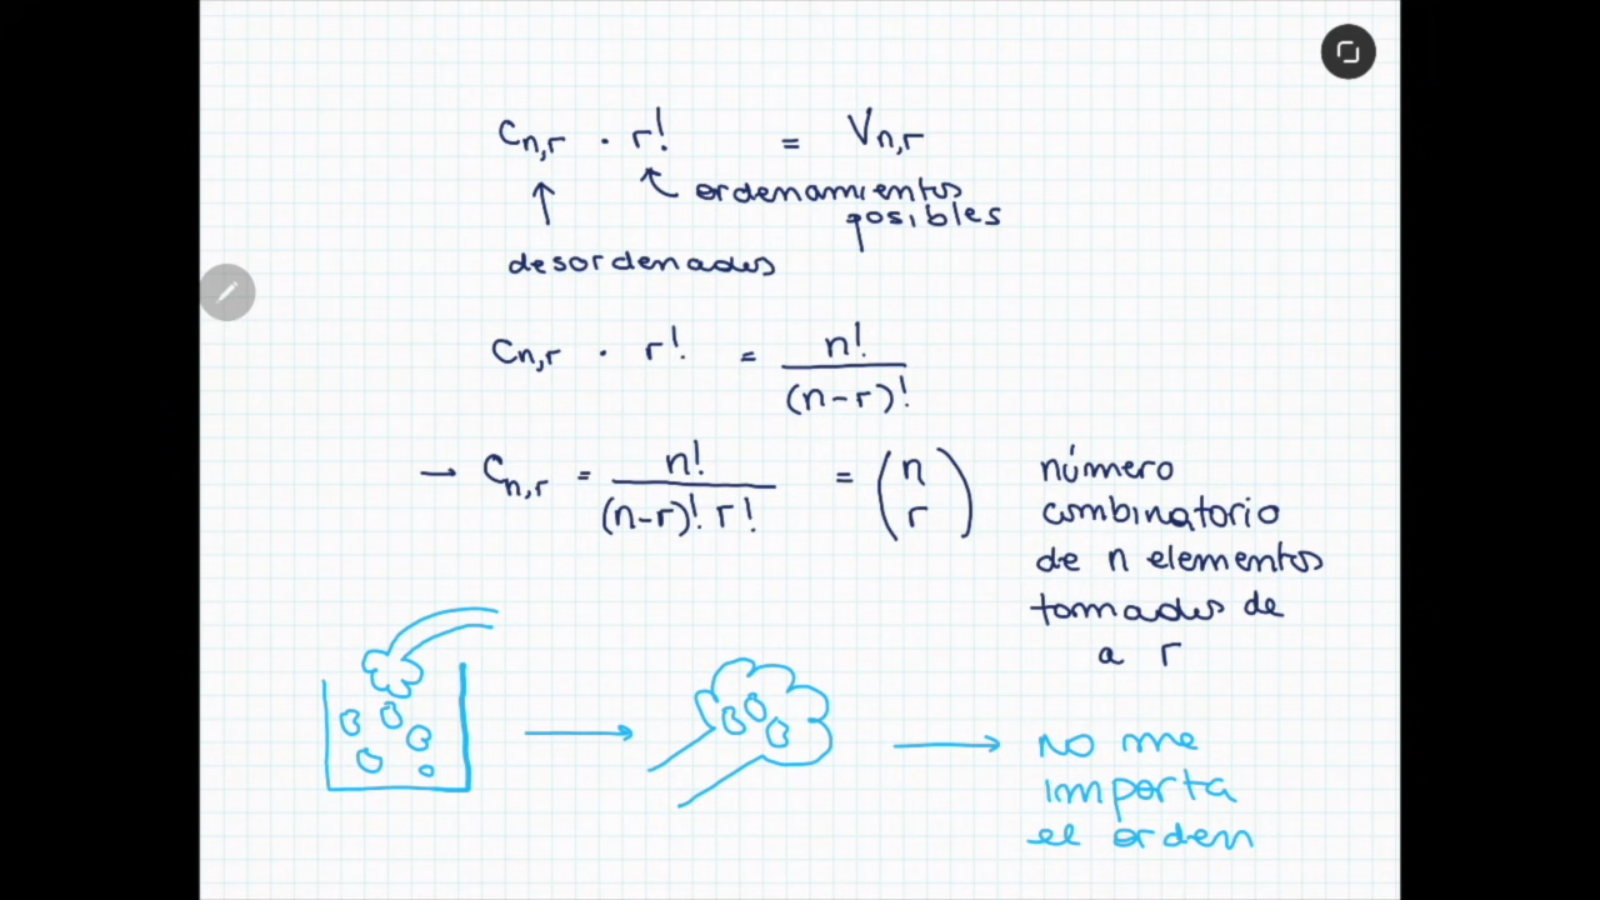 C_{n,r} · r! = V_{n,r}
ordenamientos
posibles
desordenados
C_{n,r} · r! = \frac{n!}{(n-r)!}
→ C_{n,r} = \frac{n!}{(n-r)! r!} = \binom{n}{r}
número
combinatorio
de n elementos
tomados de
a r
No me
importa
el orden